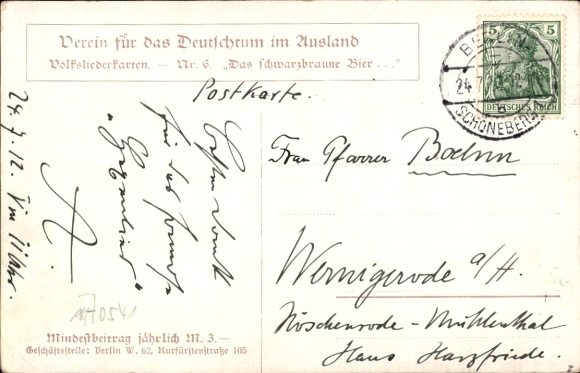 Verein für das Deutschtum im Ausland
Volksliederkarten. — Nr. 6. „Das schwarzbraune Bier . . ."
Postkarte.
5 5
DEUTSCHES REICH
BERLIN
24.7.12
SCHÖNEBERG
Frau Pfarrer Boehm
Wernigerode a/H.
Nöschenrode - Mühlenthal
Haus Harzfriede.
Besten Dank
für das
24.7.12. Vm 11 Uhr.
Mindestbeitrag jährlich M. 3.—
Geschäftsstelle: Berlin W. 62, Kurfürstenstraße 105